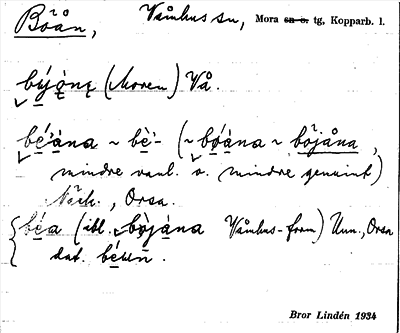 Böån, Våmhus sn, Mora sn o. tg, Kopparb. l.
býọ̀nę (Moren) Vå.
bé'ána ~ bè'- (~ bǿána ~ böjåna,
mindre vanl. o. mindre genuint)
Näck., Orsa.
béa (ibl. bòjàna Våmhus-from) Unn., Orsa
dat. béun.
Bror Lindén 1934